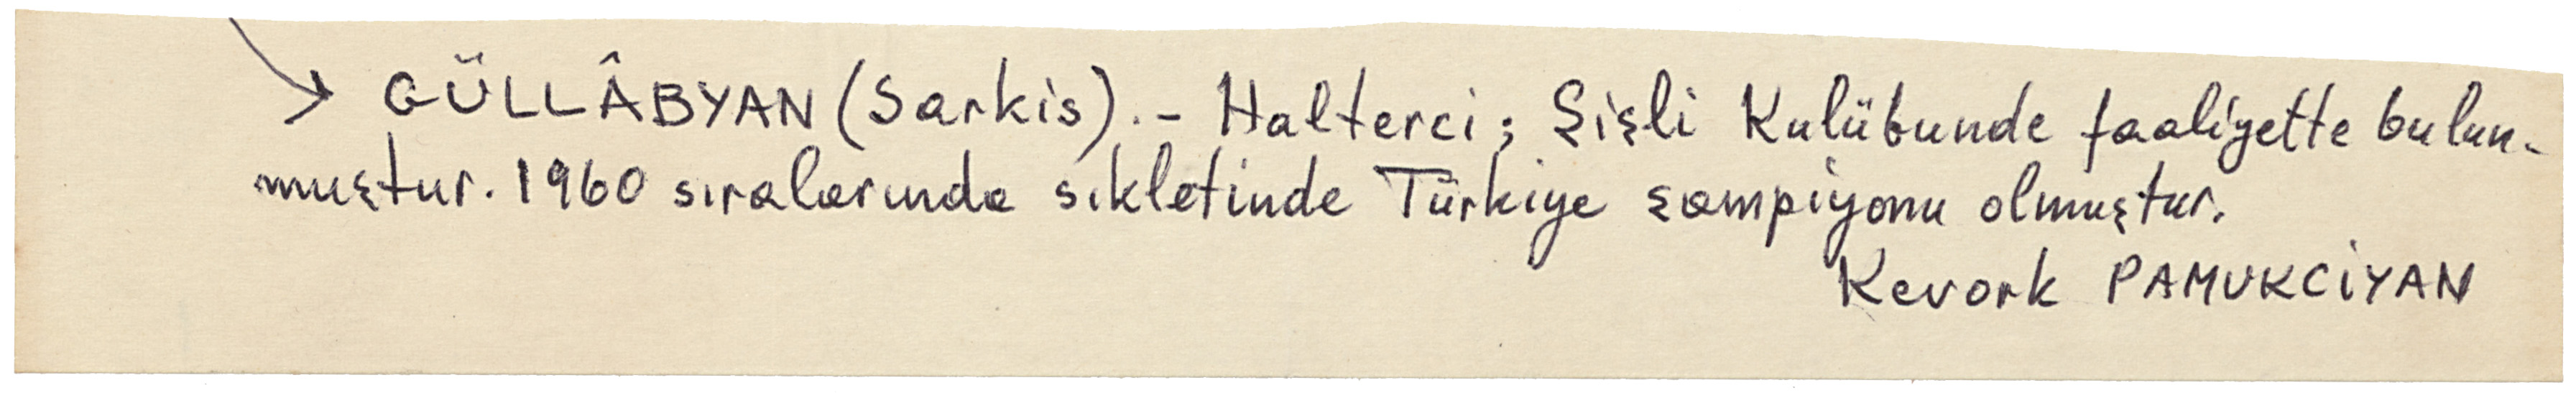 → GÜLLÂBYAN (Sarkis).- Halterci; Şişli Kulübunde faaliyette bulun-
muştur. 1960 sıralarında sikletinde Türkiye şampiyonu olmuştur.
Kevork PAMUKCİYAN